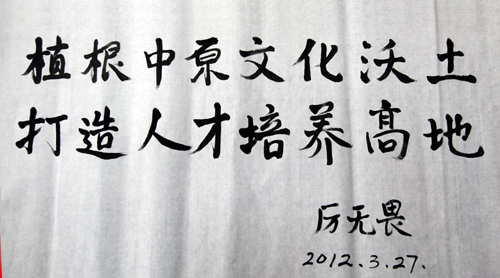 植根中原文化沃土
打造人才培养高地
厉无畏
2012.3.27.